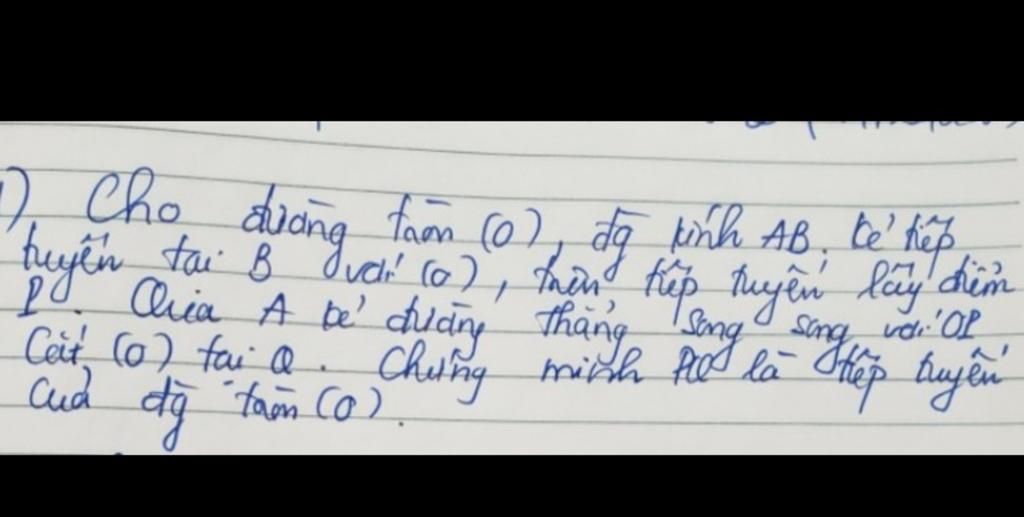 1) Cho đường tròn (O), đg kính AB. Kẻ tiếp
tuyến tại B với (O), trên tiếp tuyến lấy điểm
P. Qua A kẻ đường thẳng song song với OP
Cắt (O) tại Q. Chứng minh PQ là tiếp tuyến
của đg tròn (O).